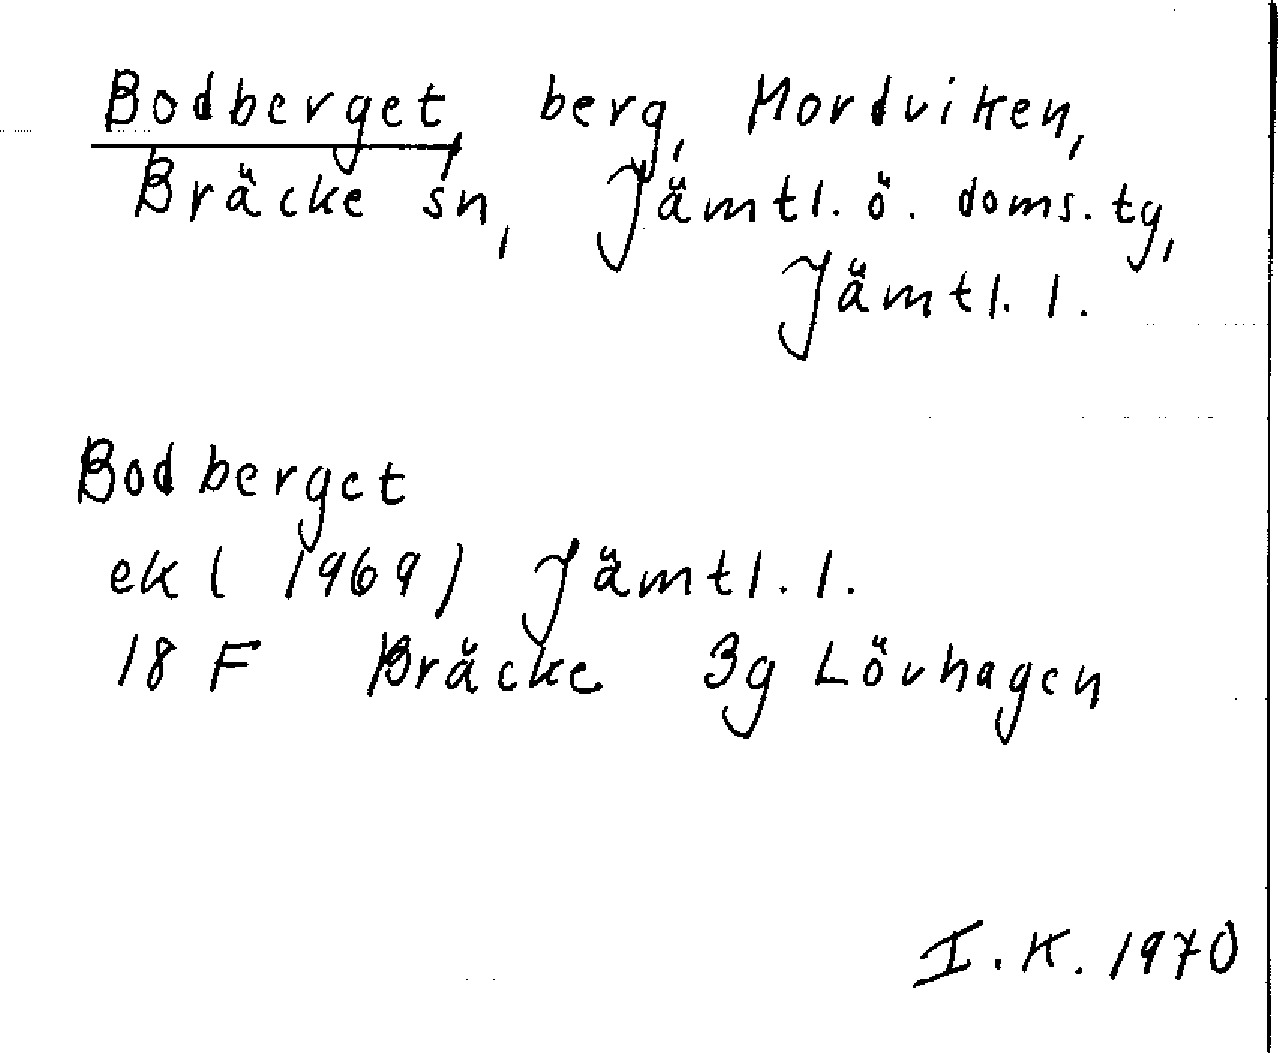 Bodberget, berg, Mordviken,
Bräcke sn, Jämtl. ö. doms. tg,
Jämtl. l.
Bodberget
ek (1969) Jämtl. l.
18 F Bräcke 3g Lövhagen
I. K. 1970